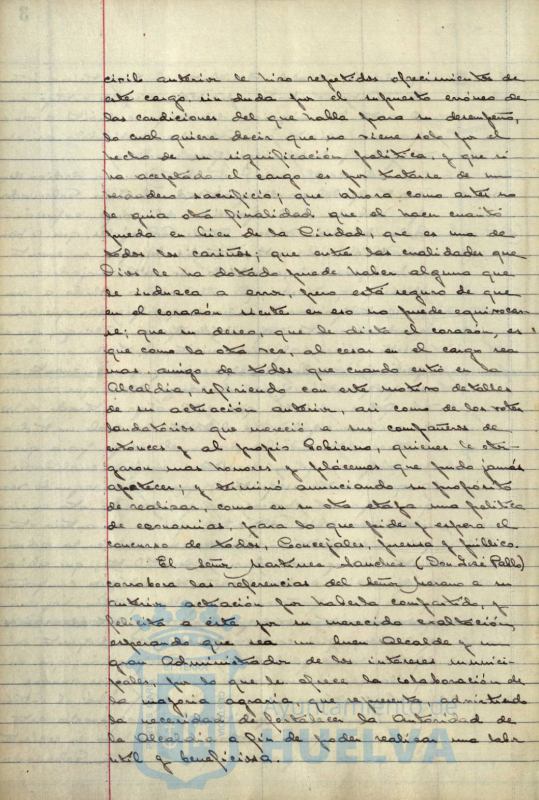 civil anterior le hizo repetidos ofrecimientos de
este cargo, sin duda por el supuesto erróneo de
las condiciones del que habla para su desempeño,
lo cual quiere decir que no viene solo por el
hecho de su significación política, y que si
ha aceptado el cargo es por tratarse de un
verdadero sacrificio; que ahora como antes no
le guia otra finalidad que el hacer cuanto
pueda en bien de la Ciudad, que es una de
todos los cariños; que entre las cualidades que
Dios le ha dotado puede haber alguna que
le induzca a error, pero está seguro de que
en el corazón siente y en eso no puede equivocar-
se; que su deseo, que le dicta el corazón, es
que como la otra vez, al cesar en el cargo sea
mas amigo de todos que cuando entró en la
Alcaldia, refiriendo con este motivo detalles
de su actuación anterior, asi como de los votos
laudatórios que mereció a sus compañeros de
entonces y al propio Gobierno, quienes le otor-
garon mas honores y plácemes que pudo jamás
apetecer; y terminó anunciando su propósito
de realizar, como en su otra etapa una politica
de economias, para lo que pide y espera el
concurso de todos, Concejales, prensa y público.
El Señor Martinez Sanchez (Don José Pablo)
corrobora las referencias del Señor Morano a su
anterior actuación por haberla compartido, y
felicita a éste por su merecida exaltación,
esperando que sea un buen Alcalde y un
gran Administrador de los intereses munici-
pales, por lo que le ofrece la colaboración de
la mayoria agraria que representa admitiendo
la necesidad de fortalecer la Autoridad de
la Alcaldia a fin de poder realizar una labor
util y beneficiosa.
Ayuntamiento de
HUELVA